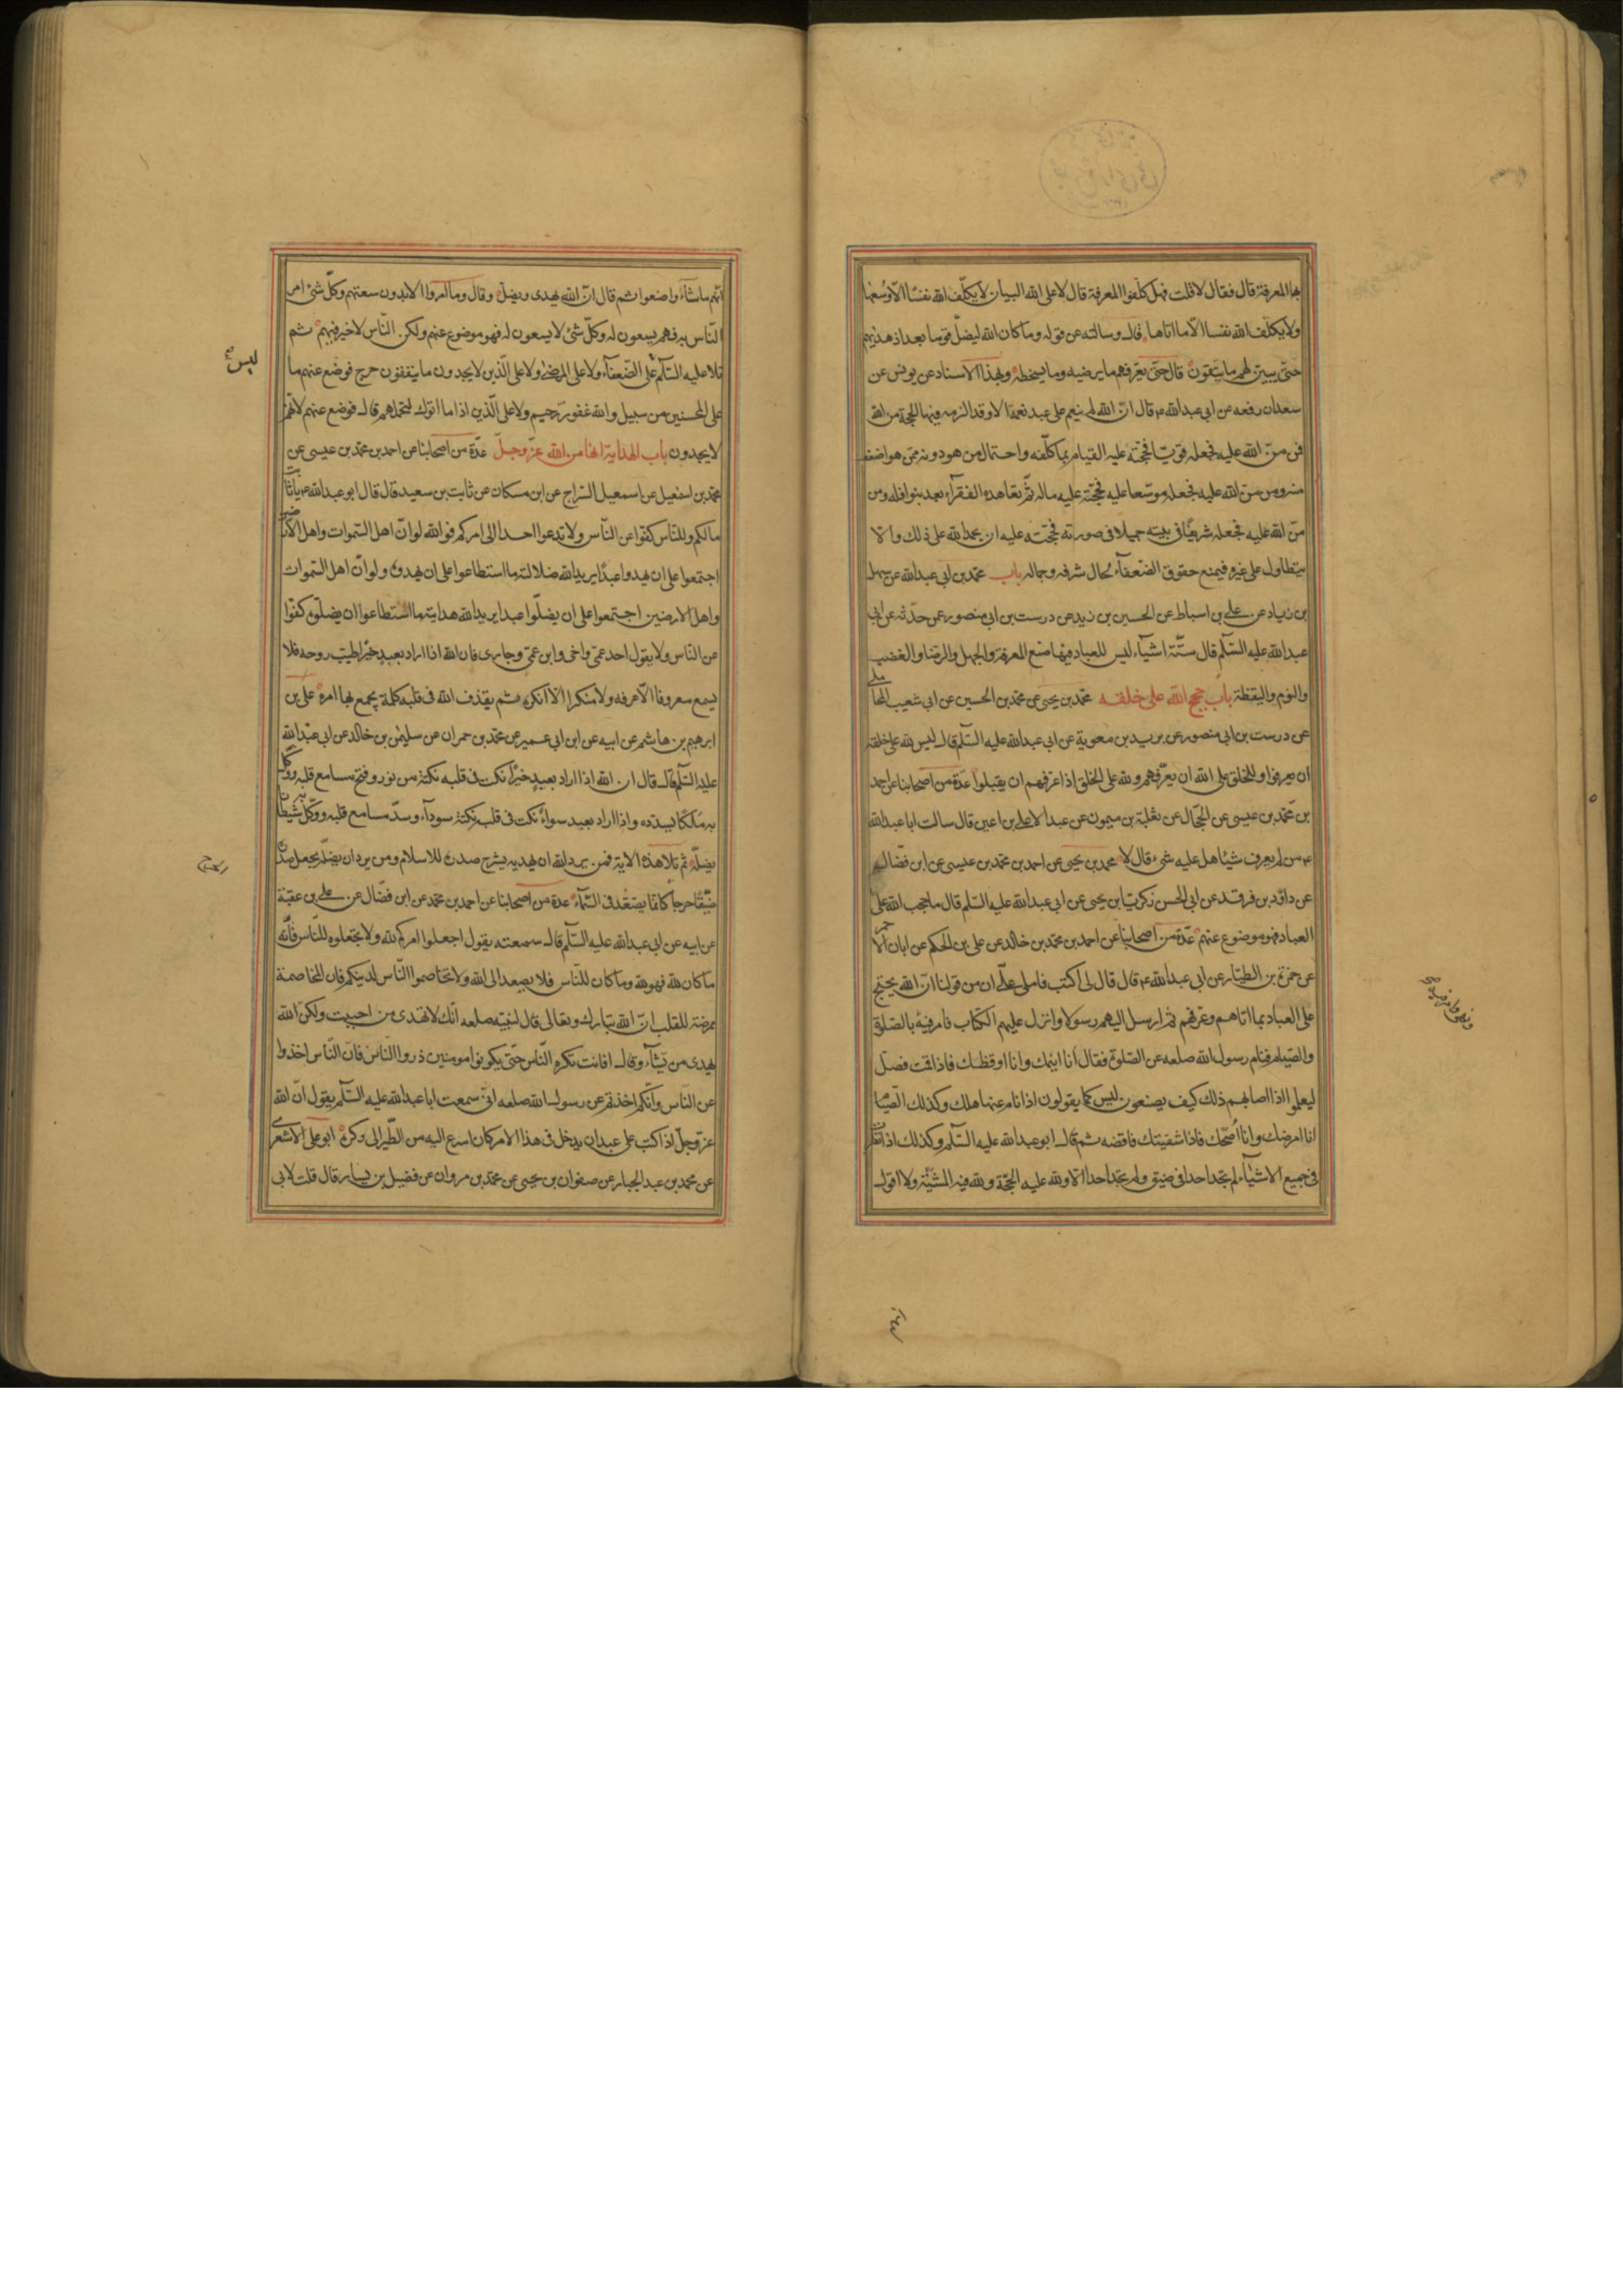 بها المعرفة قال فقال لا قلت فهل كلّفوا المعرفة قال لا على الله البيان لا يكلّف الله نفسًا الّا وسعها
ولا يكلّف الله نفسا الّا ما اتاها قال وسالته عن قوله وما كان الله ليضلّ قوما بعد اذ هديهم
حتّى يبيّن لهم ما يتّقون قال حتّى يعرّفهم ما يرضيه وما يسخطه وبهذا الاسناد عن يونس عن
سعدان رفعه عن ابي عبدالله ع قال انّ الله لم ينعم على عبد نعمة الا وقد الزمه فيها الحجة من الله
فمن منّ الله عليه فجعله قويّا فحجّته عليه القيام بما كلّفه واحتمال من هو دونه ممّن هو اضعف
منه ومن منّ الله عليه فجعله موسّعا عليه فحجّته عليه ماله ثمّ تعاهده الفقرآء بعد بنوافله ومن
منّ الله عليه فجعله شريفًا في بيته جميلا في صورته فحجّته عليه ان يحمد الله على ذلك والّا
يتطاول على غيره فيمنع حقوق الضّعفآء لحال شرفه وجماله باب محمّد بن ابي عبدالله عن سهل
بن زياد عن علي بن اسباط عن الحسين بن زيد عن درست بن ابي منصور عمن حدّثه عن ابي
عبدالله عليه السّلم قال ستّة اشيآء ليس للعباد فيها صنع المعرفة والجهل والرضا والغضب
والنوم واليقظة باب حجج الله على خلقه محمّد بن يحيى عن محمّد بن الحسين عن ابي شعيب المحاملي
عن درست بن ابي منصور عن بريد بن معوية عن ابي عبدالله عليه السّلم قال ليس لله على خلقه
ان يعرفوا وللخلق على الله ان يعرّفهم ولله على الخلق اذا عرّفهم ان يقبلوا عدّة من اصحابنا عن احمد
بن محمّد بن عيسى عن الحجّال عن ثعلبة بن ميمون عن عبد الاعلى بن اعين قال سالت ابا عبدالله
ع من لم يعرف شيئا هل عليه شيء قال لا محمد بن يحيى عن احمد بن محمّد بن عيسى عن ابن فضّال
عن داود بن فرقد عن ابي الحسن زكريّا بن يحيى عن ابي عبدالله عليه السّلم قال ما حجب الله على
العباد فهو موضوع عنهم عدّة من اصحابنا عن احمد بن محمّد بن خالد عن علي بن الحكم عن ابان الاحمر
عن حمزة بن الطيّار عن ابي عبدالله ع قال قال لي اكتب فاملى عليّ ان من قولنا انّ الله يحتجّ
على العباد بما اتاهم وعرّفهم ثمّ ارسل اليهم رسولا وانزل عليهم الكتاب فامر فيه بالصّلوة
والصّيام فنام رسول الله صلعم عن الصّلوة فقال انا انيمك وانا اوقظك فاذا قمت فصلّ
ليعلموا اذا اصابهم ذلك كيف يصنعون ليس كما يقولون اذا نام عنها هلك وكذلك الصّيام
انا امرضك وانا اُصحّك فاذا شفيتك فاقضه ثم قال ابو عبدالله عليه السّلم وكذلك اذا نظرت
في جميع الاشيآء لم تجد احدا في ضيق ولم تجد احدا الّا ولله عليه الحجّة ولله فيه المشيّة ولا اقول
انّهم ما شاؤا صنعوا ثم قال انّ الله يهدي ويضلّ وقال وما امروا الا بدون سعتهم وكلّ شيء امر
النّاس به فهم يسعون له وكلّ شيء لا يسعون له فهو موضوع عنهم ولكن النّاس لا خير فيهم ثم
تلا عليه السّلم على الضّعفآء ولا على المرضى ولا على الّذين لا يجدون ما ينفقون حرج فوضع عنهم ما
ليس
على المحسنين من سبيل والله غفور رّحيم ولا على الّذين اذا ما اتوك لتحملهم قال فوضع عنهم لانّهم
لا يجدون باب الهداية انها من الله عزّ وجلّ عدّة من اصحابنا عن احمد بن محمّد بن عيسى عن
محمّد بن اسمعيل عن اسمعيل السّراج عن ابن مسكان عن ثابت بن سعيد قال قال ابو عبدالله ع يا ثابت
ما لكم وللنّاس كفّوا عن النّاس ولا تدعوا احدا الى امركم فوالله لو انّ اهل السّموات واهل الارضين
اجتمعوا على ان يهدوا عبدًا يريد الله ضلالته ما استطاعوا على ان يهدوه ولو انّ اهل السّموات
واهل الارضين اجتمعوا على ان يضلّوا عبدا يريد الله هدايته ما استطاعوا ان يضلّوه كفّوا
عن النّاس ولا يقول احد عمّي واخي وابن عمّي وجاري فان الله اذا اراد بعبد خيرًا طيّب روحه فلا
يسمع معروفا الّا عرفه ولا منكرا الّا انكره ثم يقذف الله في قلبه كلمة يجمع بها امره علي بن
ابرهيم بن هاشم عن ابيه عن ابن ابي عمير عن محمّد بن حمران عن سليمن بن خالد عن ابي عبدالله
عليه السّلم قال قال ان الله اذا اراد بعبدٍ خيرًا نكت في قلبه نكتة من نور وفتح مسامع قلبه ووكّل
به ملكًا يسدّده واذا اراد بعبد سواءً نكت في قلبه نكتة سودآء وسدّ مسامع قلبه ووكّل به شيطانا
يضلّه ثم تلا هذه الاية فمن يرد الله ان يهديه يشرح صدره للاسلام ومن يرد ان يضلّه يجعل صدره
ضيّقًا حرجا كانّما يصّعّد في السّمآء عدة من اصحابنا عن احمد بن محمّد عن ابن فضّال عن علي بن عقبة
عن ابيه عن ابي عبدالله عليه السّلم قال سمعته يقول اجعلوا امركم لله ولا تجعلوه للنّاس فانّه
ما كان لله فهو لله وما كان للنّاس فلا يصعد الى الله ولا تخاصموا النّاس لدينكم فان المخاصمة
ممرضة للقلب انّ الله تبارك وتعالى قال لنبيّه صلعم انّك لا تهدي من احببت ولكنّ الله
يهدي من يشآء وقال افانت تكره النّاس حتّى يكونوا مومنين ذروا النّاس فانّ النّاس اخذوا
عن النّاس وانّكم اخذتم عن رسول الله صلعم انّي سمعت ابا عبدالله عليه السّلم يقول انّ الله
عزّ وجلّ اذا كتب على عبد ان يدخل في هذا الامر كان اسرع اليه من الطّير الى وكره ابو علي الاشعري
عن محمد بن عبد الجبار عن صفوان بن يحيى عن محمّد بن مروان عن فضيل بن يسار قال قلت لابي